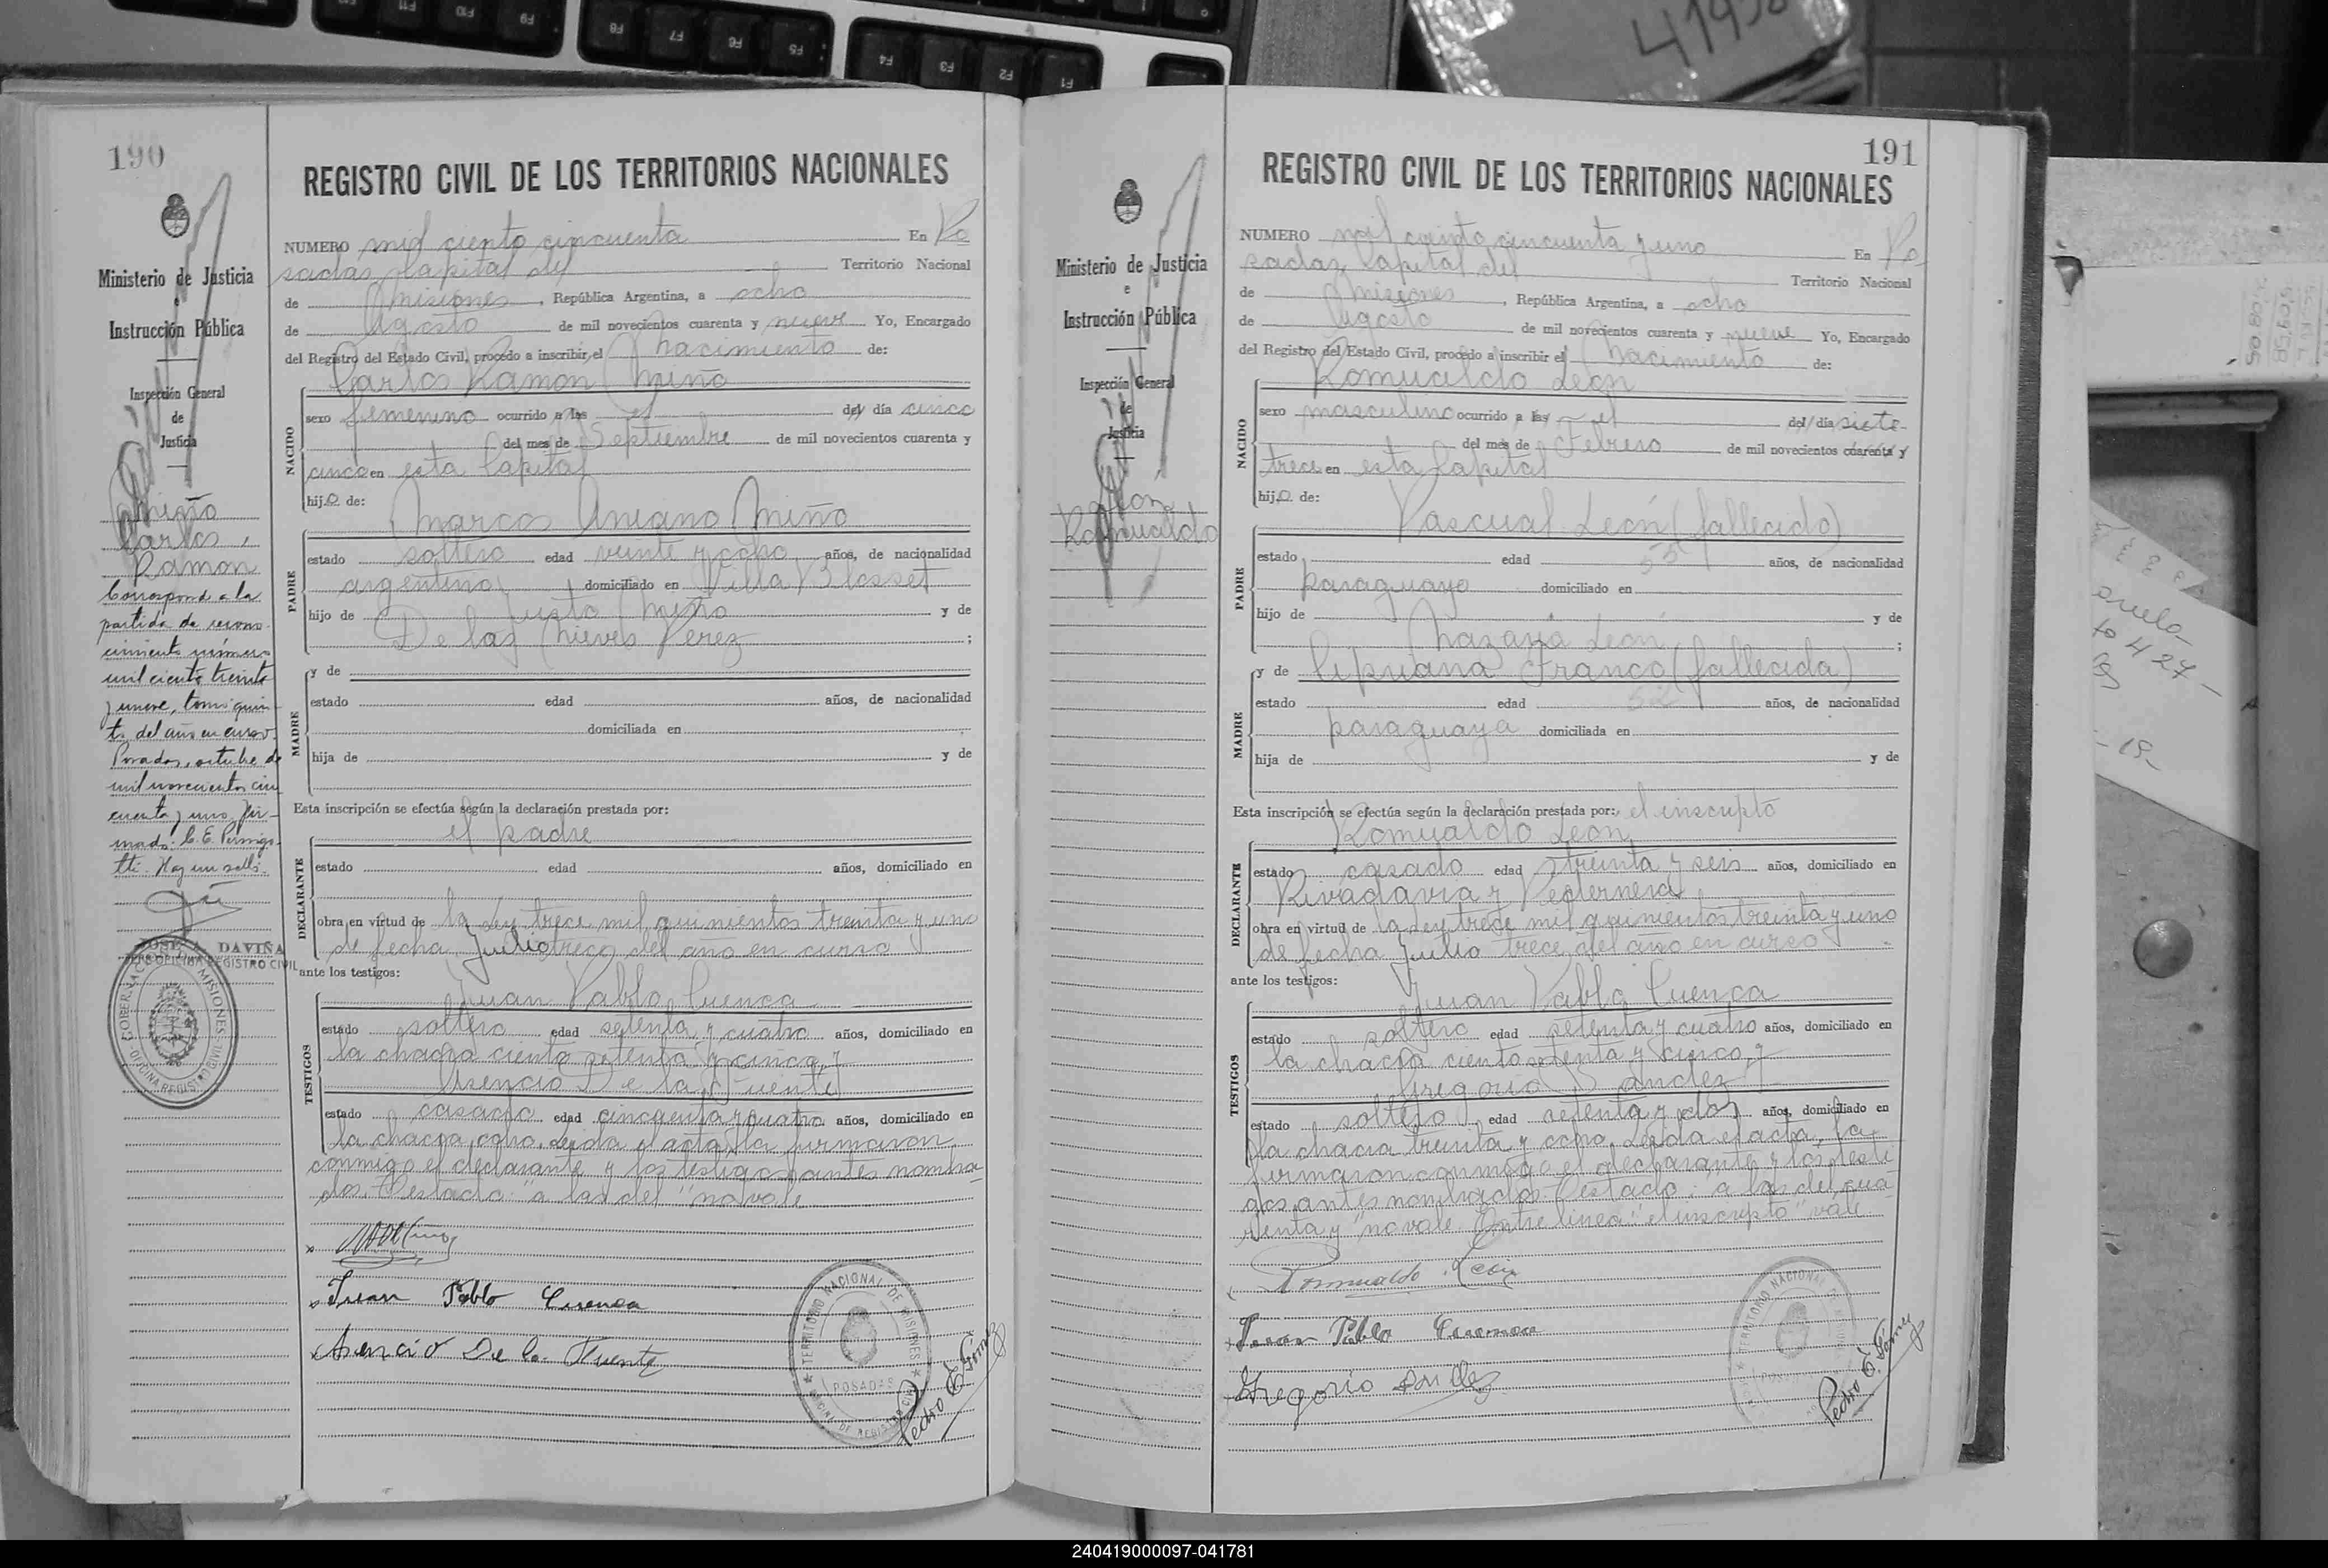 190
REGISTRO CIVIL DE LOS TERRITORIOS NACIONALES
Ministerio de Justicia
e
Instrucción Pública
Inspección General
de
Justicia
Miño
Carlos,
Ramon
Corresponde a la
partida de recono-
cimiento número
mil ciento treinta
y nueve, tomo quin-
to del año en curso.
Posadas, octubre de
mil novecientos cin
cuenta y uno. Fir-
mado: C. E. Pernigo-
tti. Hay un sello.
JOSE A. DAVIÑA
JEFE OFICINA REGISTRO CIVIL
GOBERNACION DE MISIONES
OFICINA REGISTRO CIVIL
NUMERO mil ciento cincuenta En Po
sadas, Capital del Territorio Nacional
de Misiones, República Argentina, a ocho
de Agosto de mil novecientos cuarenta y nueve Yo, Encargado
del Registro del Estado Civil, procedo a inscribir el nacimiento de:
NACIDO
Carlos Ramon Miño
sexo femenino ocurrido a las el del día cinco
del mes de Septiembre de mil novecientos cuarenta y
cinco en esta Capital
hijo de:
PADRE
Marcos Aniano Miño
estado soltero edad veinte y ocho años, de nacionalidad
argentino domiciliado en Villa Blosset
hijo de Justo Miño y de
De las Nieves Perez ;
MADRE
y de
estado edad años, de nacionalidad
domiciliada en
hija de y de
Esta inscripción se efectúa según la declaración prestada por:
DECLARANTE
el padre
estado edad años, domiciliado en
obra en virtud de la Ley trece mil quinientos treinta y uno
de fecha Julio trece del año en curso
ante los testigos:
TESTIGOS
Juan Pablo Cuenca
estado soltero edad setenta y cuatro años, domiciliado en
la chacra ciento setenta y cinco, y
Asencio De la Fuente
estado casado edad cincuenta y cuatro años, domiciliado en
la chacra ocho. Leida el acta, la firmaron
conmigo el declarante y los testigos antes nombra
dos. Testado: "a las del" no vale
Juan Pablo Cuenca
Asencio De la Fuente
TERRITORIO NACIONAL DE MISIONES
POSADAS
OFICINA DE REGISTRO CIVIL
Pedro E. Gómez
191
REGISTRO CIVIL DE LOS TERRITORIOS NACIONALES
Ministerio de Justicia
e
Instrucción Pública
Inspección General
de
Justicia
León
Romualdo
NUMERO mil ciento cincuenta y uno En Po
sadas, Capital del Territorio Nacional
de Misiones, República Argentina, a ocho
de Agosto de mil novecientos cuarenta y nueve Yo, Encargado
del Registro del Estado Civil, procedo a inscribir el nacimiento de:
NACIDO
Romualdo León
sexo masculino ocurrido a las el del día siete
del mes de Febrero de mil novecientos cuarenta y
trece en esta Capital
hijo de:
PADRE
Pascual León (fallecido)
estado edad 53 años, de nacionalidad
paraguayo domiciliado en
hijo de y de
Nazaria León ;
MADRE
y de Cipriana Franco (fallecida)
estado edad 52 años, de nacionalidad
paraguaya domiciliada en
hija de y de
Esta inscripción se efectúa según la declaración prestada por: el inscripto
DECLARANTE
Romualdo León
estado casado edad treinta y seis años, domiciliado en
Rivadavia y Pedernera
obra en virtud de la Ley trece mil quinientos treinta y uno
de fecha Julio trece del año en curso
ante los testigos:
TESTIGOS
Juan Pablo Cuenca
estado soltero edad setenta y cuatro años, domiciliado en
la chacra ciento setenta y cinco, y
Gregorio Sanchez
estado soltero edad setenta y dos años, domiciliado en
la chacra treinta y ocho. Leida el acta, la
firmaron conmigo el declarante y los testi
gos antes nombrados. Testado: "a las del cua
renta y" no vale. Entre linea: "el inscripto" vale.
Romualdo León
Juan Pablo Cuenca
Gregorio
TERRITORIO NACIONAL
Pedro E. Gómez
240419000097-041781